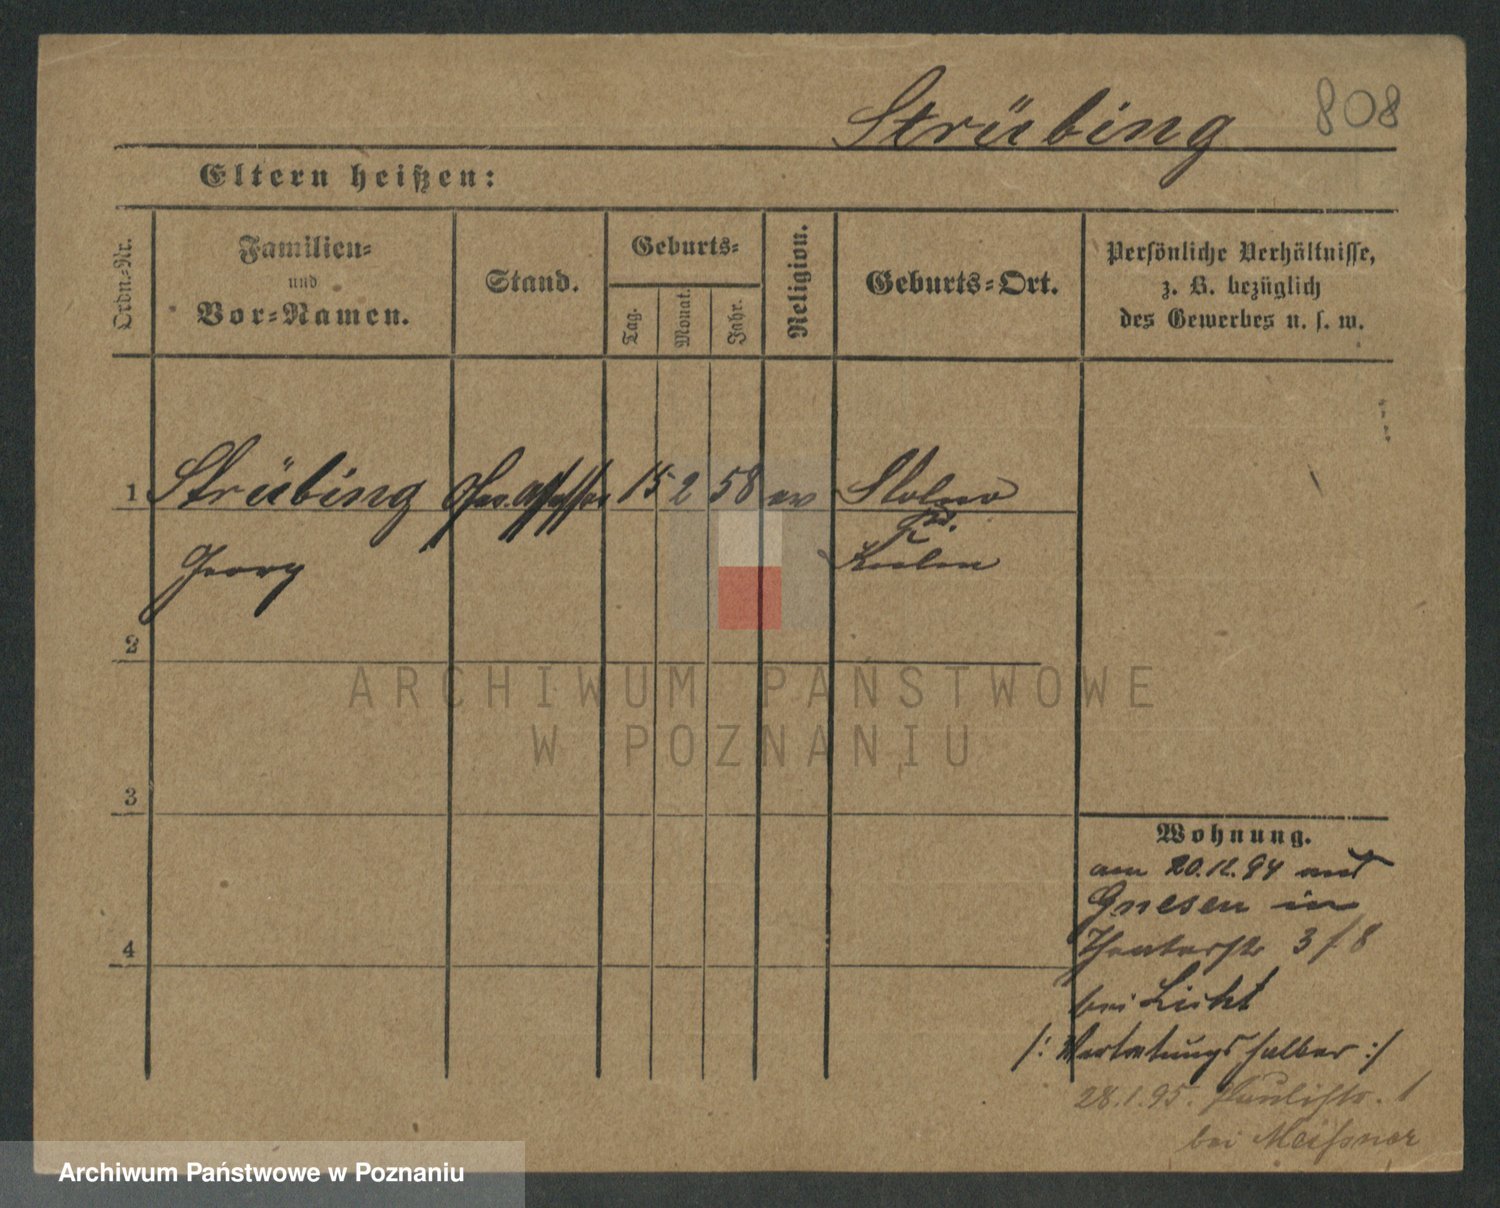 Strübing 808
Eltern heißen:
Ordn.-Nr.
Familien-
und
Vor-Namen.
Stand.
Geburts-
Tag.
Monat.
Jahr.
Religion.
Geburts-Ort.
Persönliche Verhältnisse,
z. B. bezüglich
des Gewerbes u. s. w.
1 Strübing Ger. Assessor 15 2 58 ev Stolno
Georg
Kr.
Kulm
2
3
4
Wohnung.
am 20.12.94 aus
Gnesen in
Theaterstr 3 / 8
bei Licht
/: Vertretungshalber :/
28.1.95. Paulistr. 1
bei Meißner
ARCHIWUM PAŃSTWOWE
W POZNANIU
Archiwum Państwowe w Poznaniu